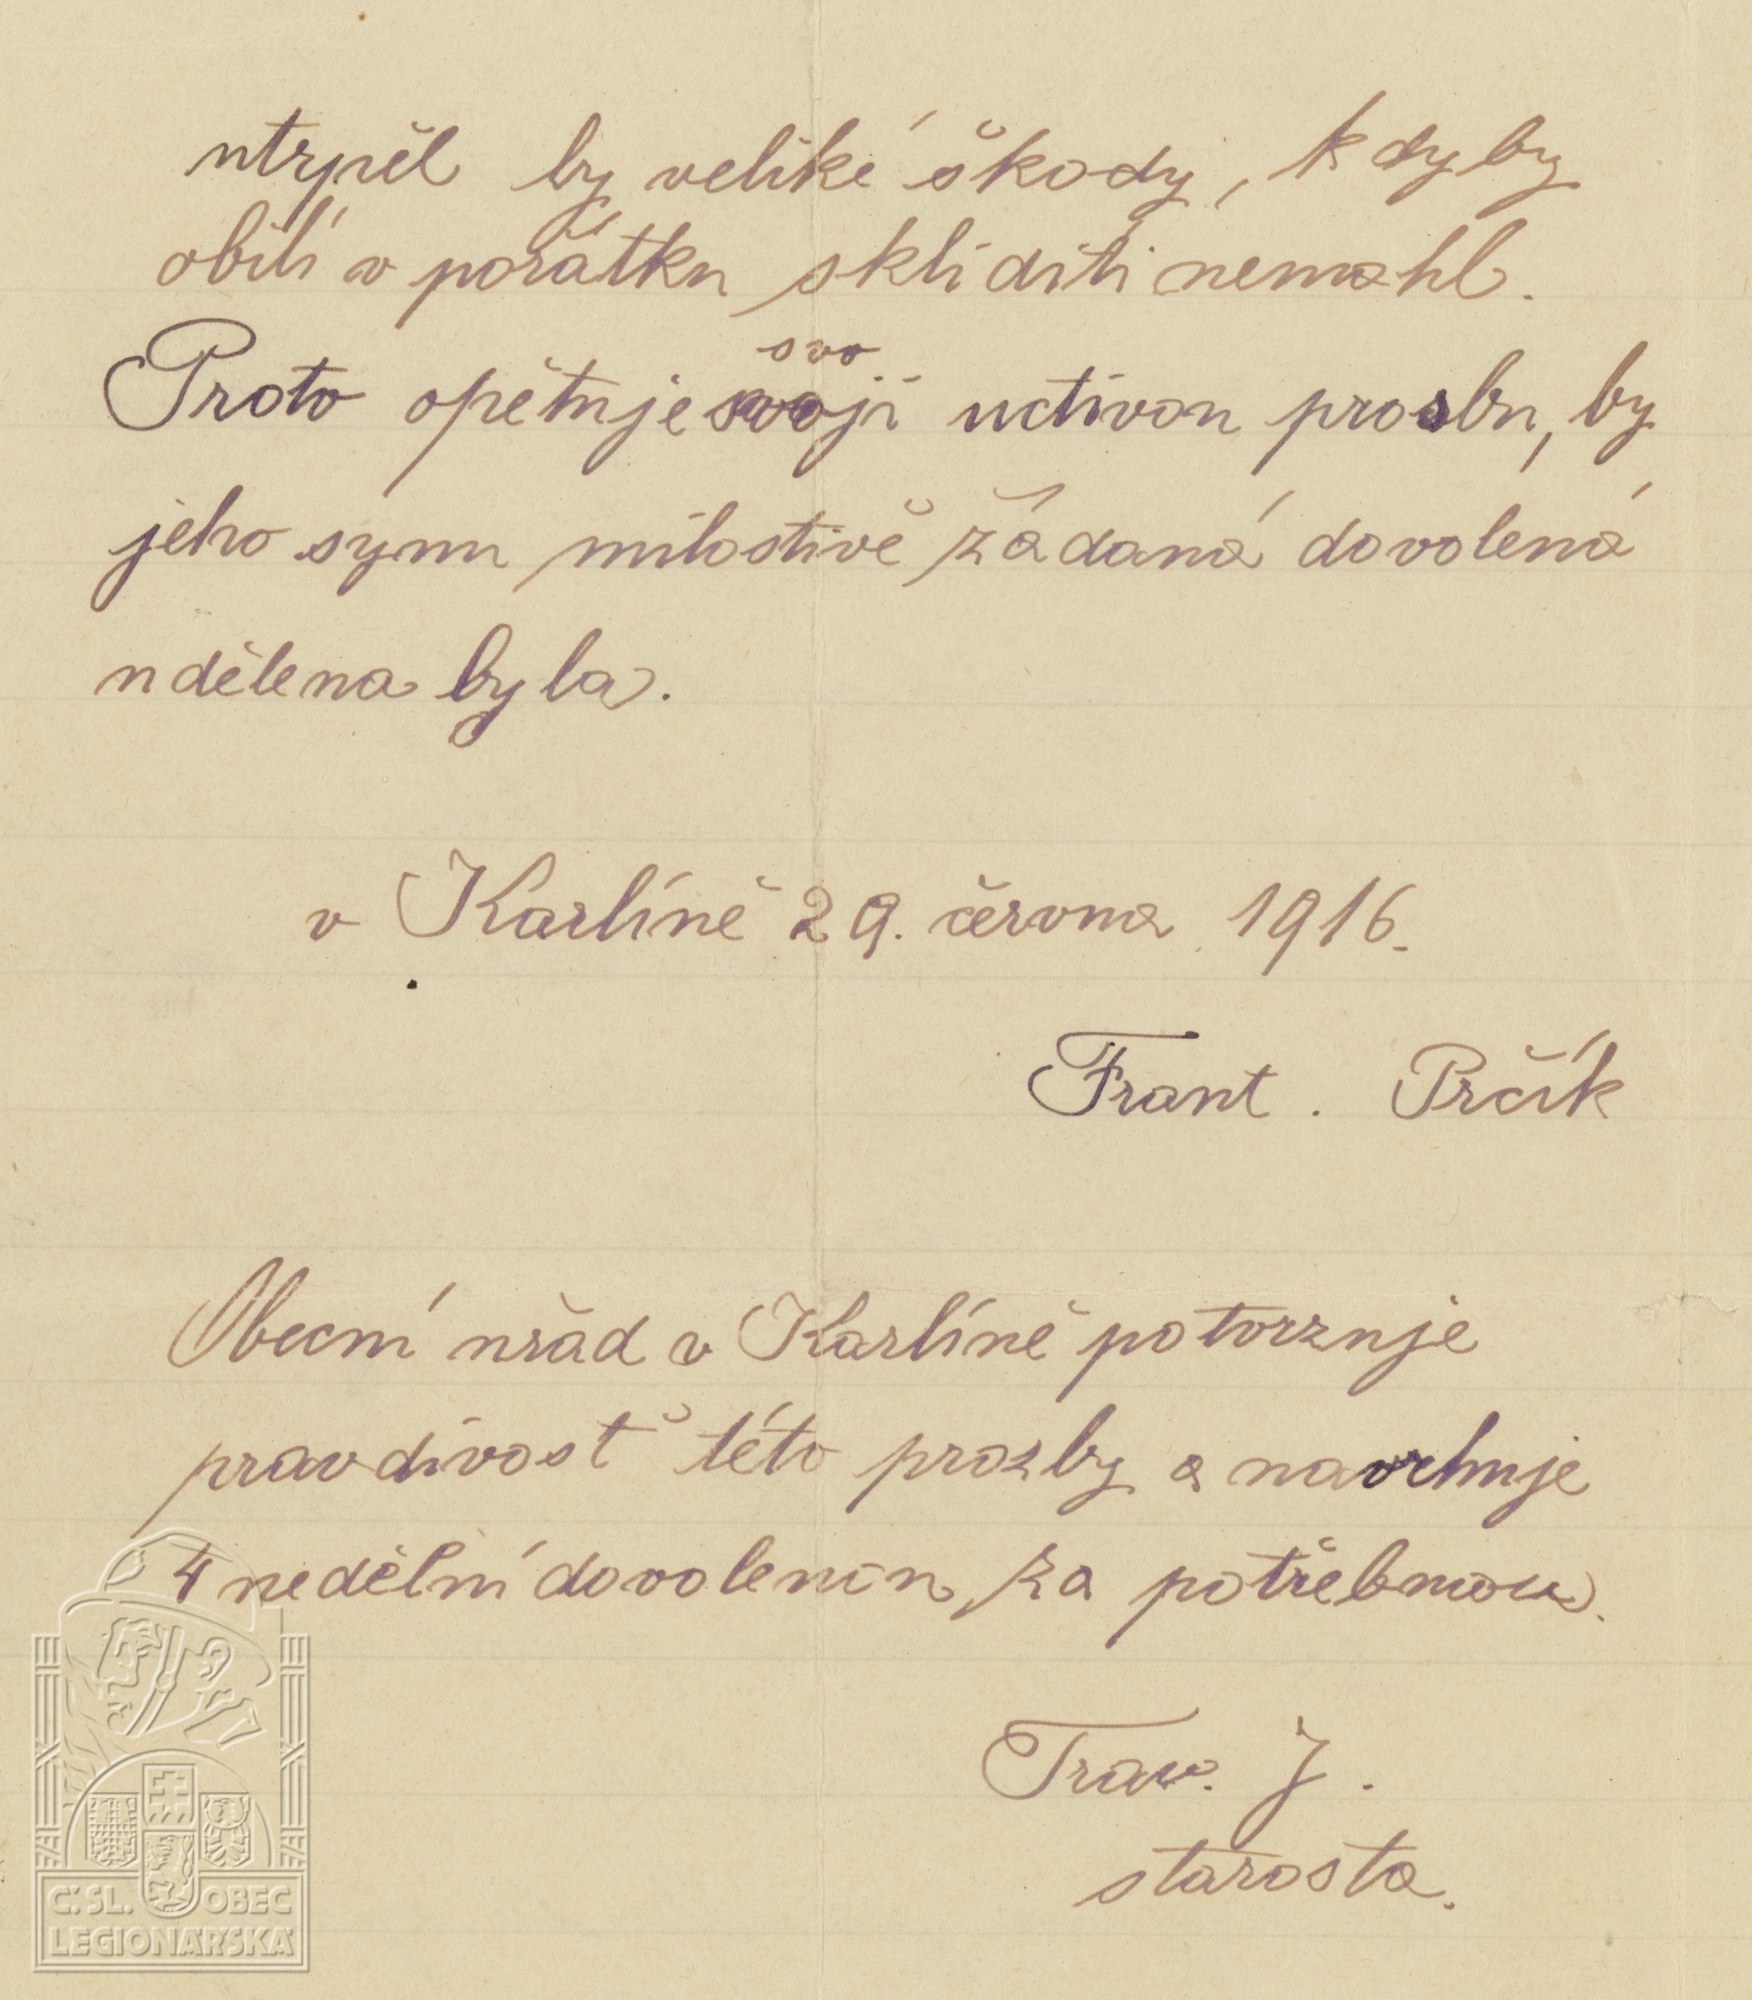 utrpěl by veliké škody, kdyby
obilí v pořátku skliditi nemohl.
Proto opětuje svoji uctivou prosbu, by
svo
jeho synu milostivě žádaná dovolená
udělena byla.
v Karlíně 29. června 1916.
Frant. Prčík
Obecní uřad v Karlíně potvrzuje
pravdivosť této prozby a navrhuje
4 nedělní dovolenou za potřebnou.
Trav. J.
starosta.
Č.SL. OBEC
LEGIONÁŘSKÁ